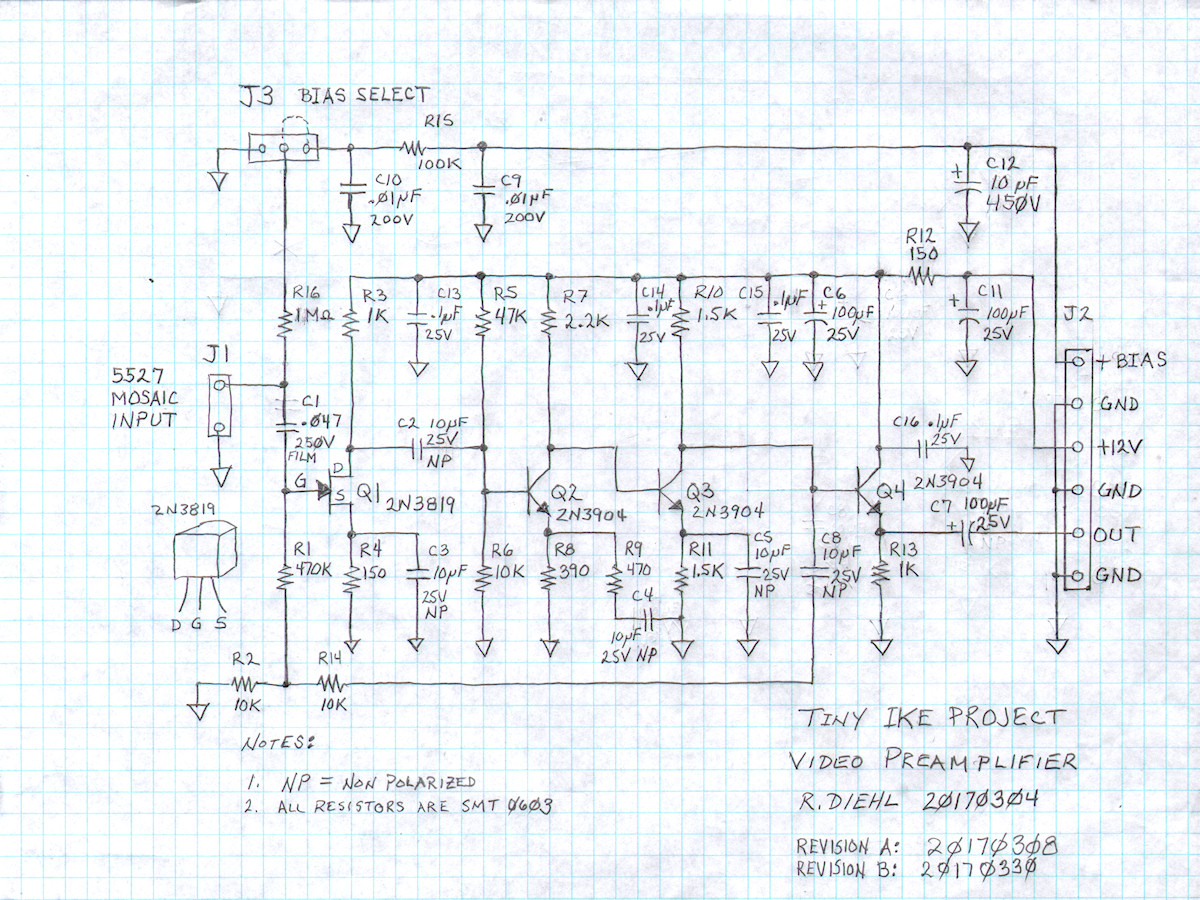 J3 BIAS SELECT
R15
100K
C10
.01µF
200V
C9
.01µF
200V
C12
+
10µF
450V
R12
150
R16
1MΩ
R3
1K
C13
.1µF
25V
R5
47K
R7
2.2K
C14
.1µF
25V
R10
1.5K
C15
.1µF
25V
C6
+
100µF
25V
C11
+
100µF
25V
J2
+BIAS
GND
+12V
GND
OUT
GND
J1
5527
MOSAIC
INPUT
C1
.047
250V
FILM
C2 10µF
25V
NP
D
G
S
Q1
2N3819
Q2
2N3904
Q3
2N3904
Q4
2N3904
C16 .1µF
25V
C7 100µF
+
25V
2N3819
D G S
R1
470K
R4
150
C3
10µF
25V
NP
R6
10K
R8
390
R9
470
C4
10µF
25V NP
R11
1.5K
C5
10µF
25V
NP
C8
10µF
25V
NP
R13
1K
R2
10K
R14
10K
NOTES:
1. NP = NON POLARIZED
2. ALL RESISTORS ARE SMT 0603
TINY IKE PROJECT
VIDEO PREAMPLIFIER
R. DIEHL 20170304
REVISION A: 20170308
REVISION B: 20170330